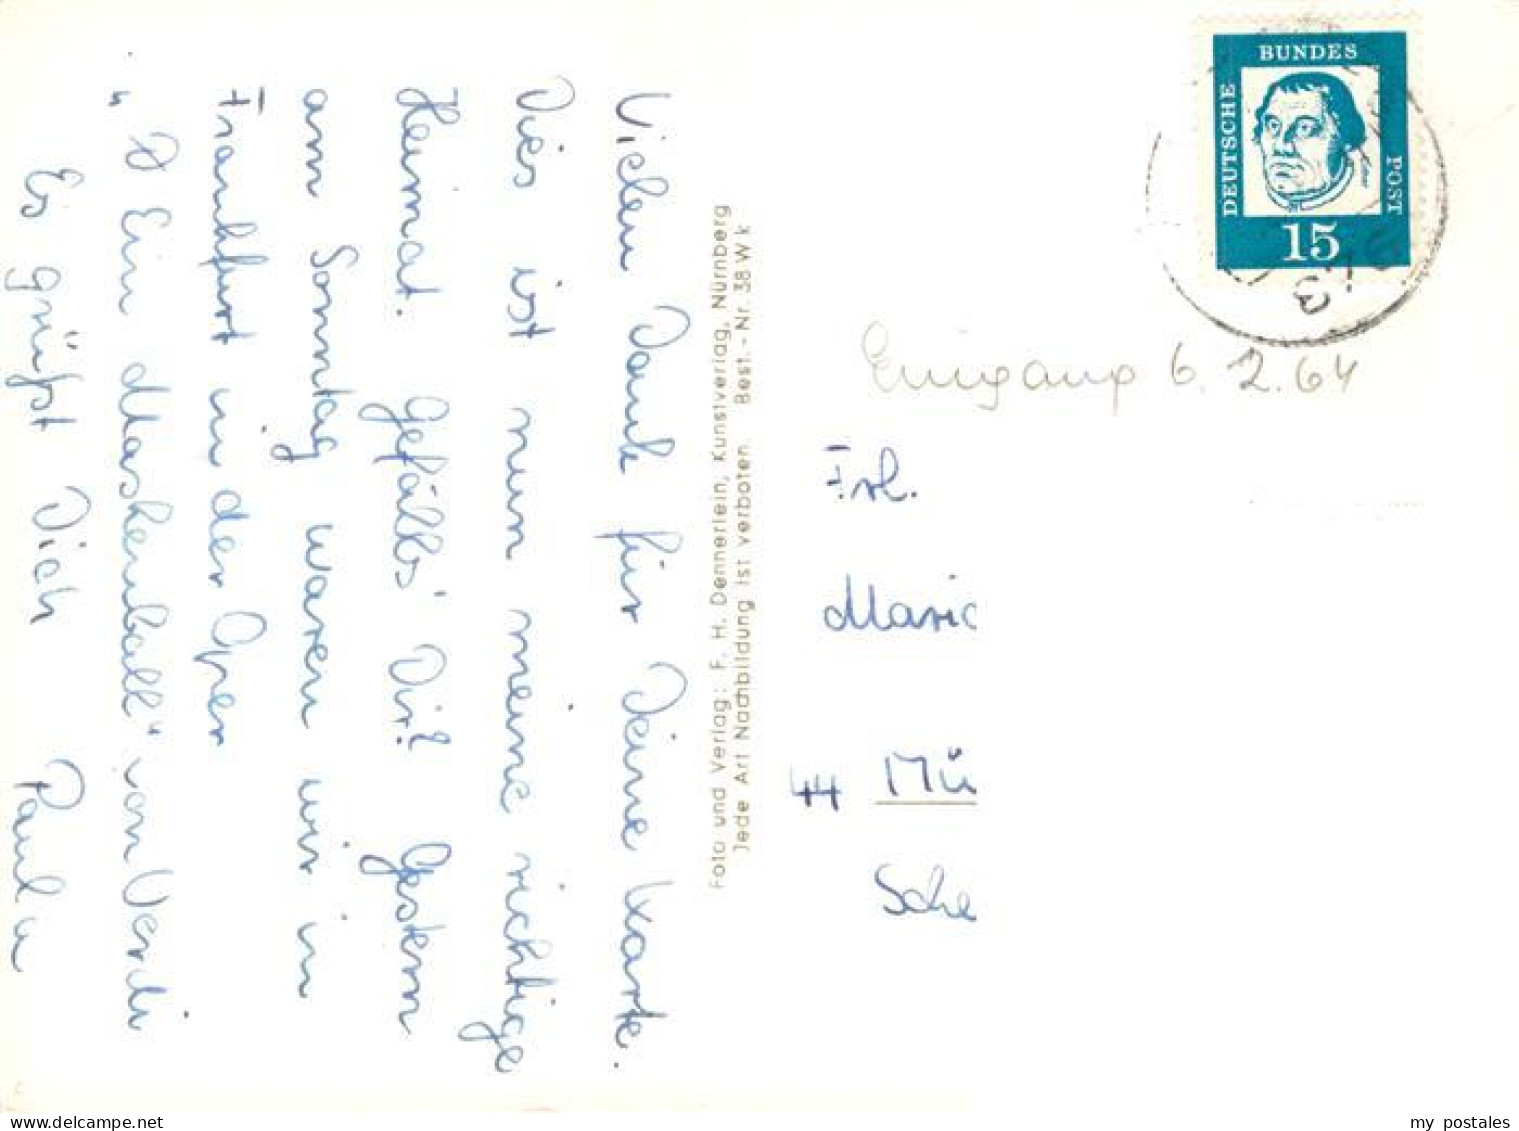 Vielen Dank für Deine Karte.
Dies ist nun meine richtige
Heimat. Gefällts' Dir? Gestern
am Sonntag waren wir in
Frankfurt in der Oper
„Ein Maskenball“ von Verdi
Es grüßt Dich Paula
Foto und Verlag: F. H. Dennerlein, Kunstverlag, Nürnberg
Jede Art Nachbildung ist verboten. Best.-Nr. 38 Wk
DEUTSCHE BUNDES POST
15
Eingang 6. 2. 64
Frl.
Marie
44 Mü
Sche
my postales